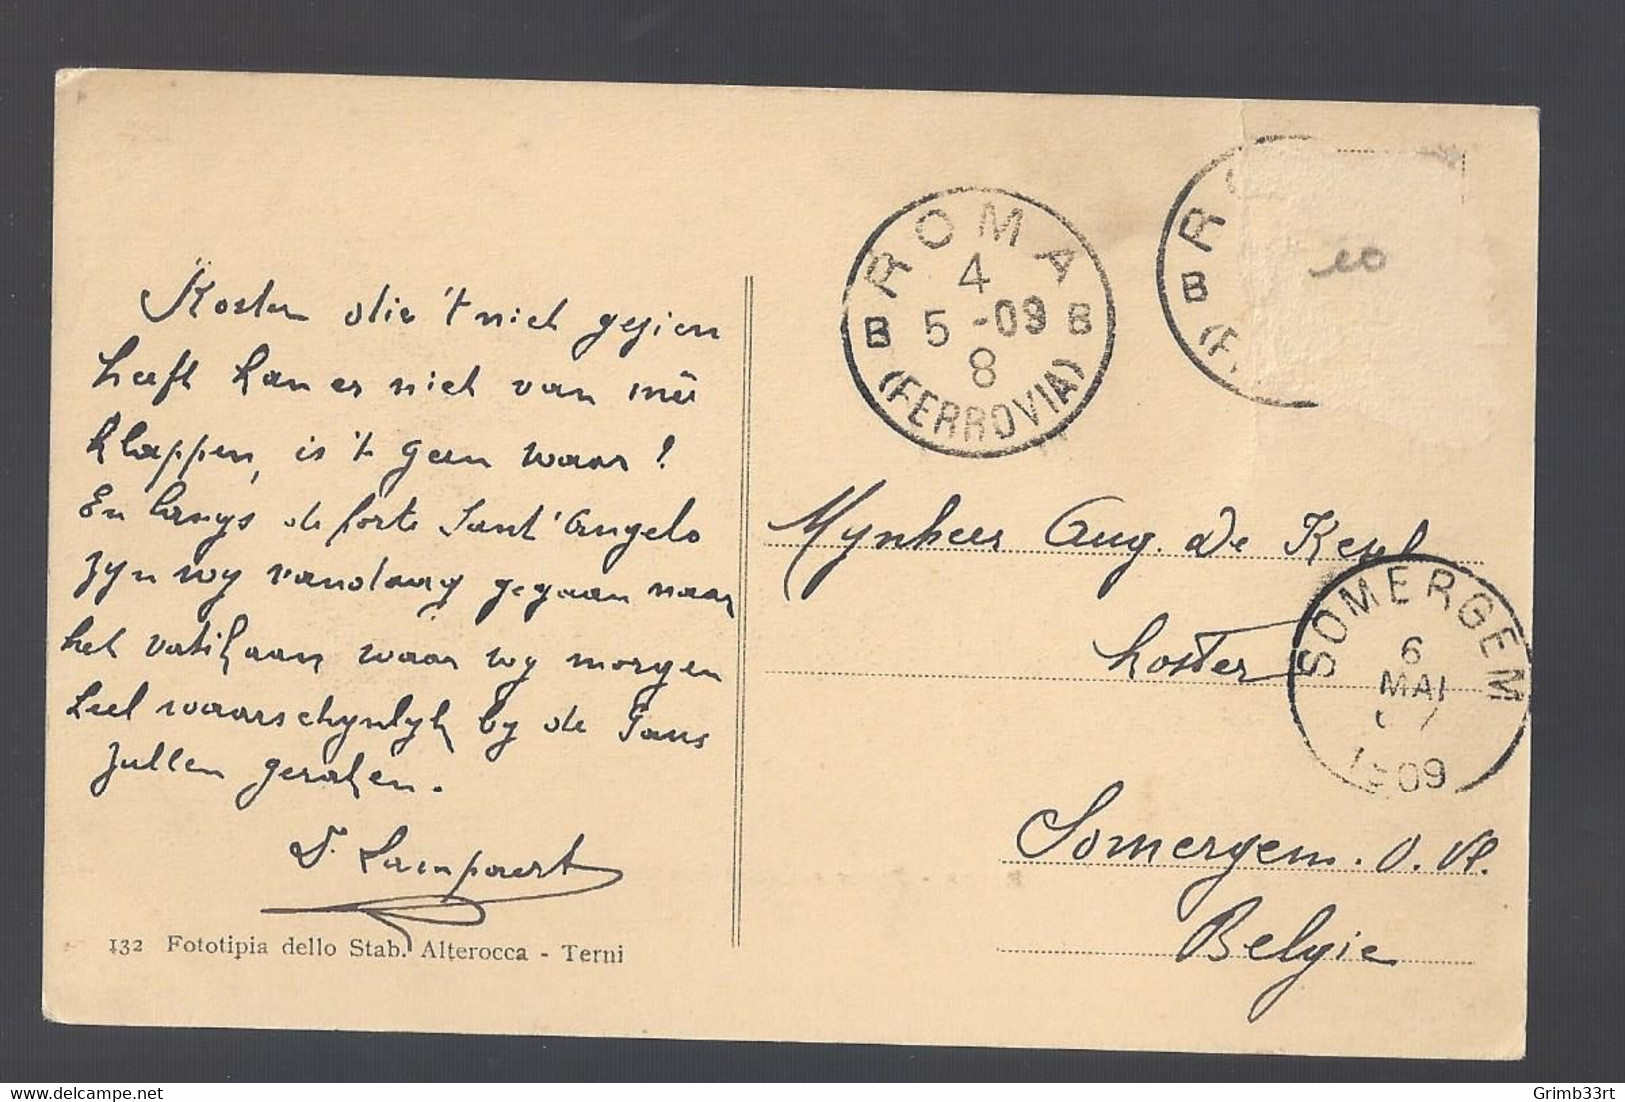 Koster die 't niet gezien
heeft kan er niet van mée
klappen, is 't geen waar?
En langs de forte Sant' Angelo
zyn wy vandaag gegaan naar
het vatikaan waar wy morgen
heel waarschynlyk by de Paus
zullen geraken.
Lampaert
132 Fototipia dello Stab. Alterocca - Terni
ROMA
4
B 5 -09 B
8
(FERROVIA)
R
B
(F
10
Mynheer Aug. De Keyl
koster
SOMERGEM
6
MAI
1909
Somergem. O. Vl.
Belgie
Grimb33rt